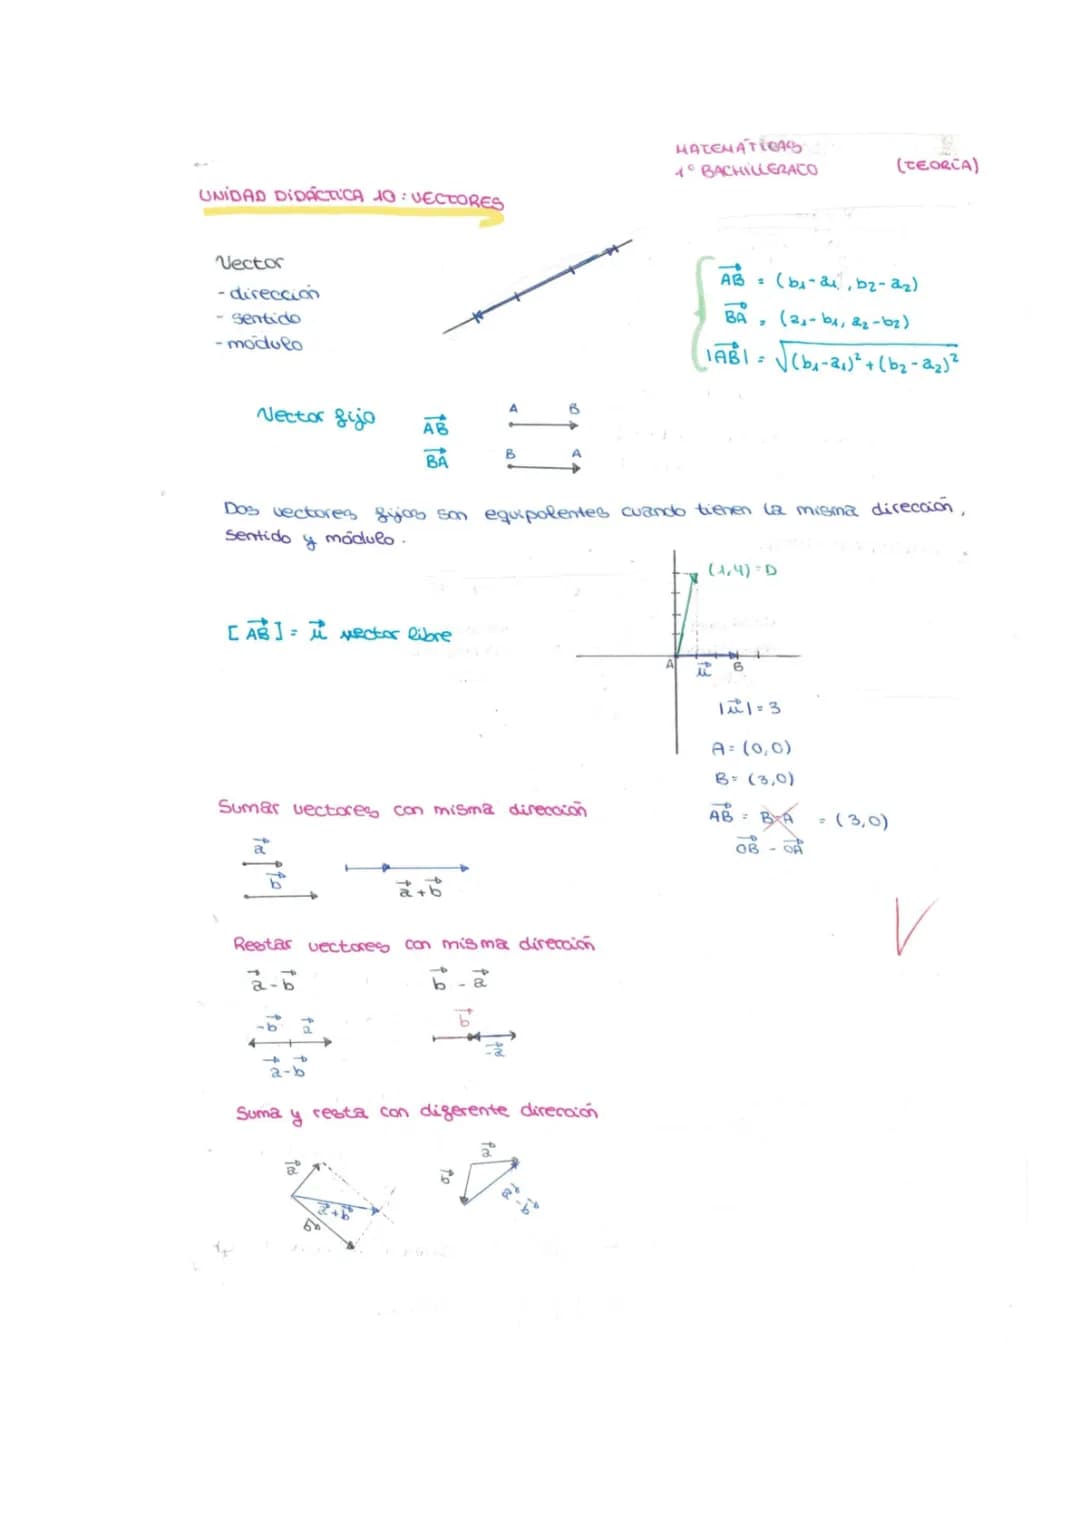 MATEMÁTICAS
1º BACHILLERATO (TEORÍA)
UNIDAD DIDÁCTICA 10: VECTORES
Vector
- dirección
- sentido
- módulo
AB = (b1-a1, b2-a2)
BA = (a1-b1, a2-b2)
|AB| = √(b1-a1)² + (b2-a2)²
Vector fijo
AB
A B
BA
B A
Dos vectores fijos son equipolentes cuando tienen la misma dirección,
sentido y módulo.
(1,4) = D
[AB] = u vector libre
A u B
|u| = 3
A = (0,0)
B = (3,0)
AB = B-A = (3,0)
OB - OA
Sumar vectores con misma dirección
a
b
a+b
V
Restar vectores con misma dirección
a-b b-a
-b a
a-b
b
-a
Suma y resta con diferente dirección
a
a+b
b
a
b
a-b